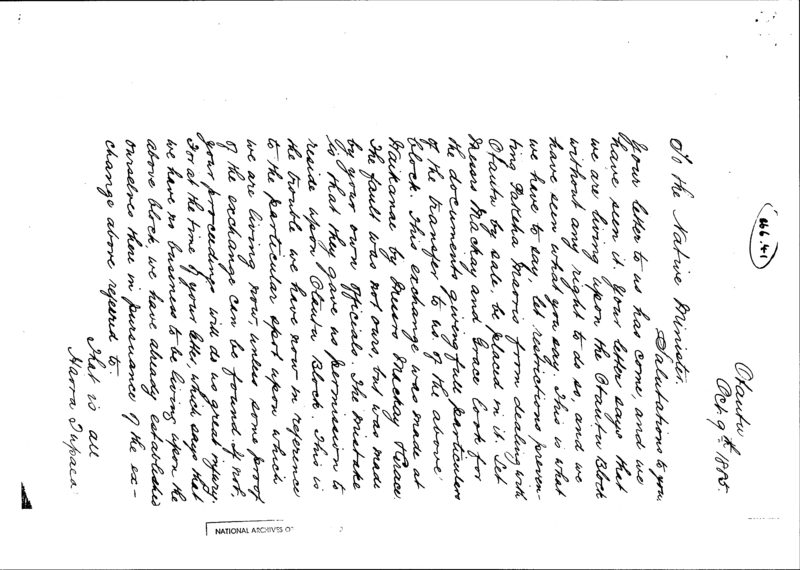 Otautu
Oct. 9th 1885.
To the Native Minister.
Salutations to you
Your letter to us has come, and we
have seen it. Your letter says that
we are living upon the Otautu Block
without any right to do so, and we
have seen what you say. This is what
we have to say, let restrictions preven-
ting Pakeha Maoris from dealing with
Otautu by sale, be placed in it. Let
Messrs Mackay and Grace look for
the documents giving full particulars
of the transfer to us of the above
block. This exchange was made at
Waikanae by Messrs Mackay & Grace.
The fault was not ours, but was made
by your own officials. The mistake
is that they gave us permission to
reside upon Otautu Block. This is
the trouble we have now in reference
to the particular spot upon which
we are living now, unless some proof
of the exchange can be found. If not,
your proceedings will do us great injury.
For at the time of your letter, which says that
we have no business to be living upon the
above block, we have already established
ourselves there in pursuance of the ex-
change above referred to
That is all
NATIONAL ARCHIVES OF